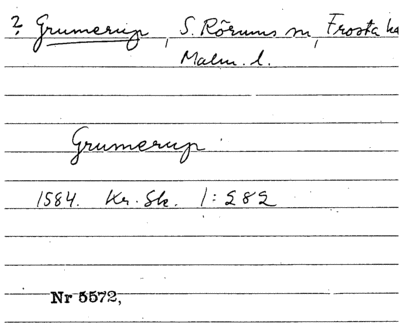 ? Grumerup, S. Rörums sn, Frosta ha
Malm. l.
Grumerup
1584. Kr. Sk. 1:282
Nr 5572,